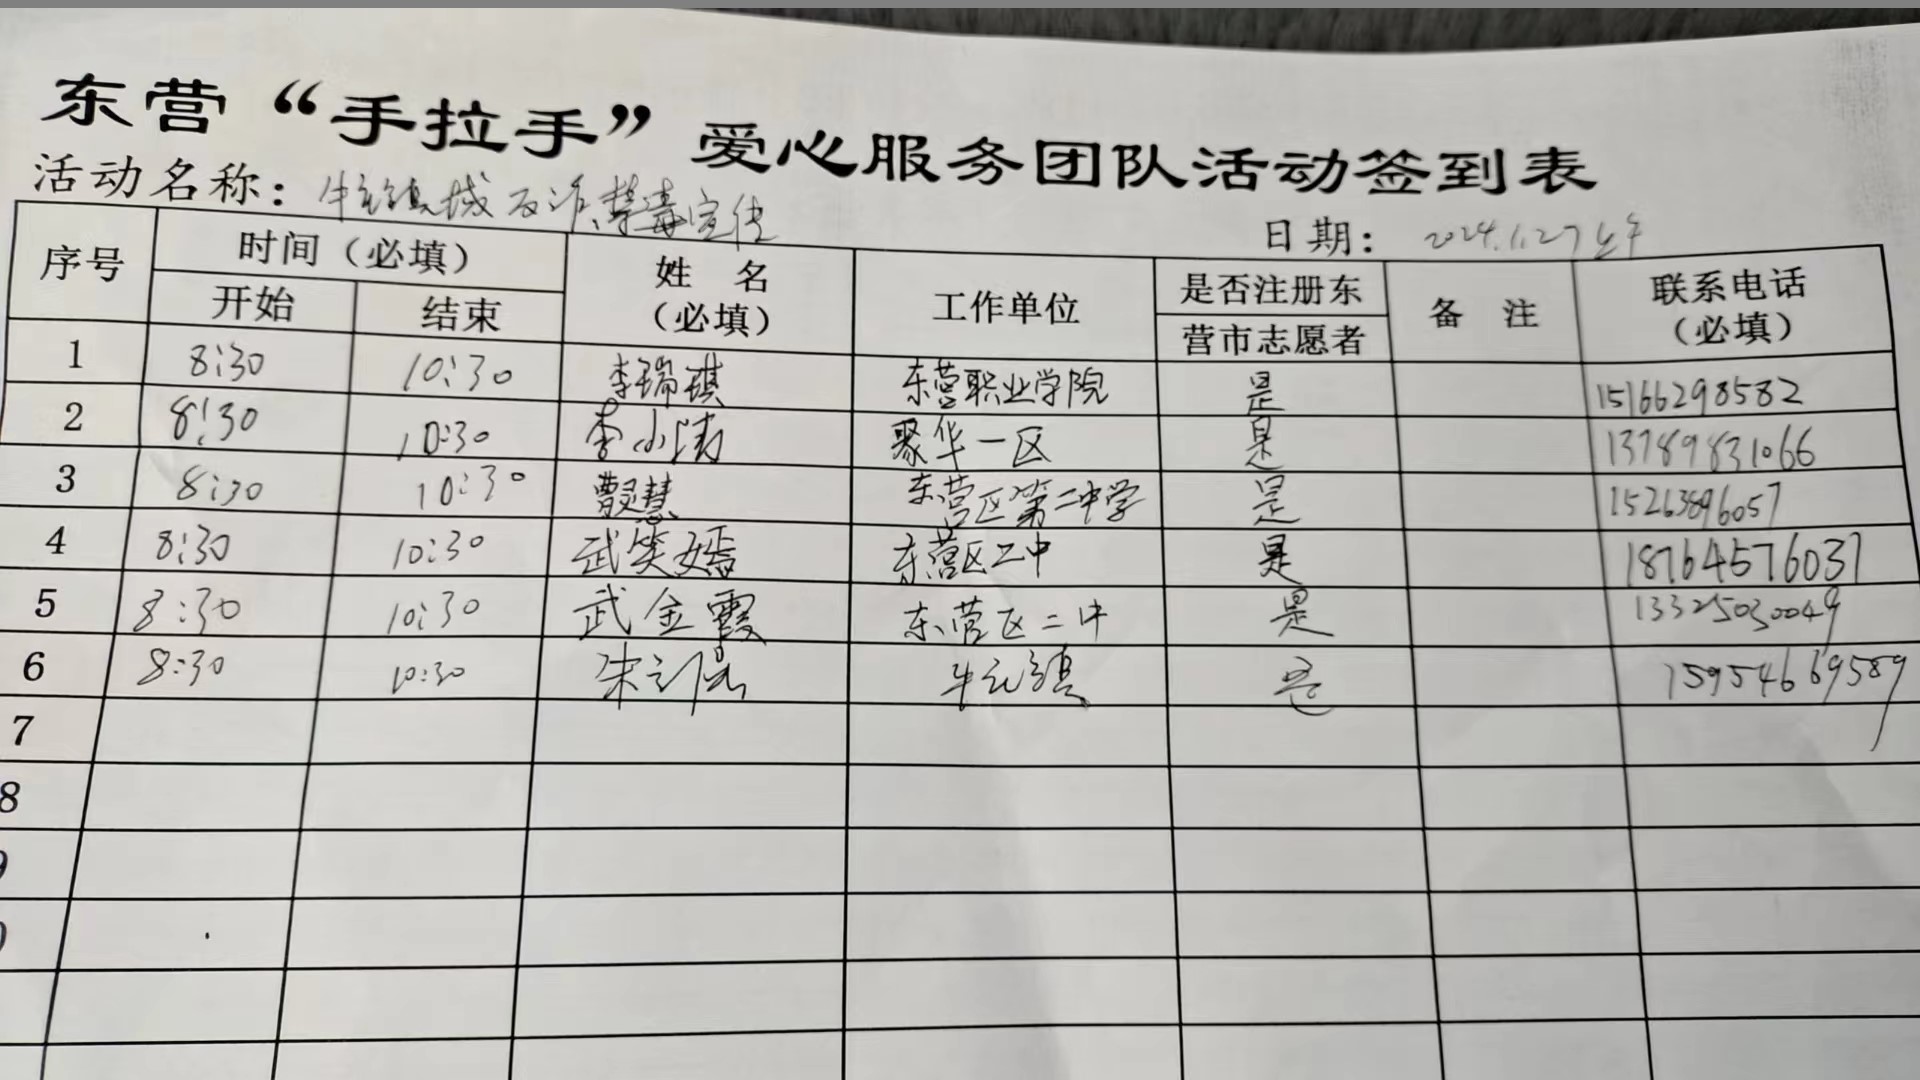 东营“手拉手”爱心服务团队活动签到表
活动名称： 牛庄镇域反诈禁毒宣传
日期： 2024.1.27上午
序号 时间（必填） 姓名（必填） 工作单位 是否注册东营市志愿者 备注 联系电话（必填）
开始 结束
1 8:30 10:30 李瑞琪 东营职业学院 是 15166298582
2 8:30 10:30 李小涛 聚华一区 是 13789831066
3 8:30 10:30 曹灵慧 东营区第二中学 是 15263896057
4 8:30 10:30 武笑嫣 东营区二中 是 18764576037
5 8:30 10:30 武金霞 东营区二中 是 13325030049
6 8:30 10:30 宋 牛庄镇 是 15954669589
7
8
9